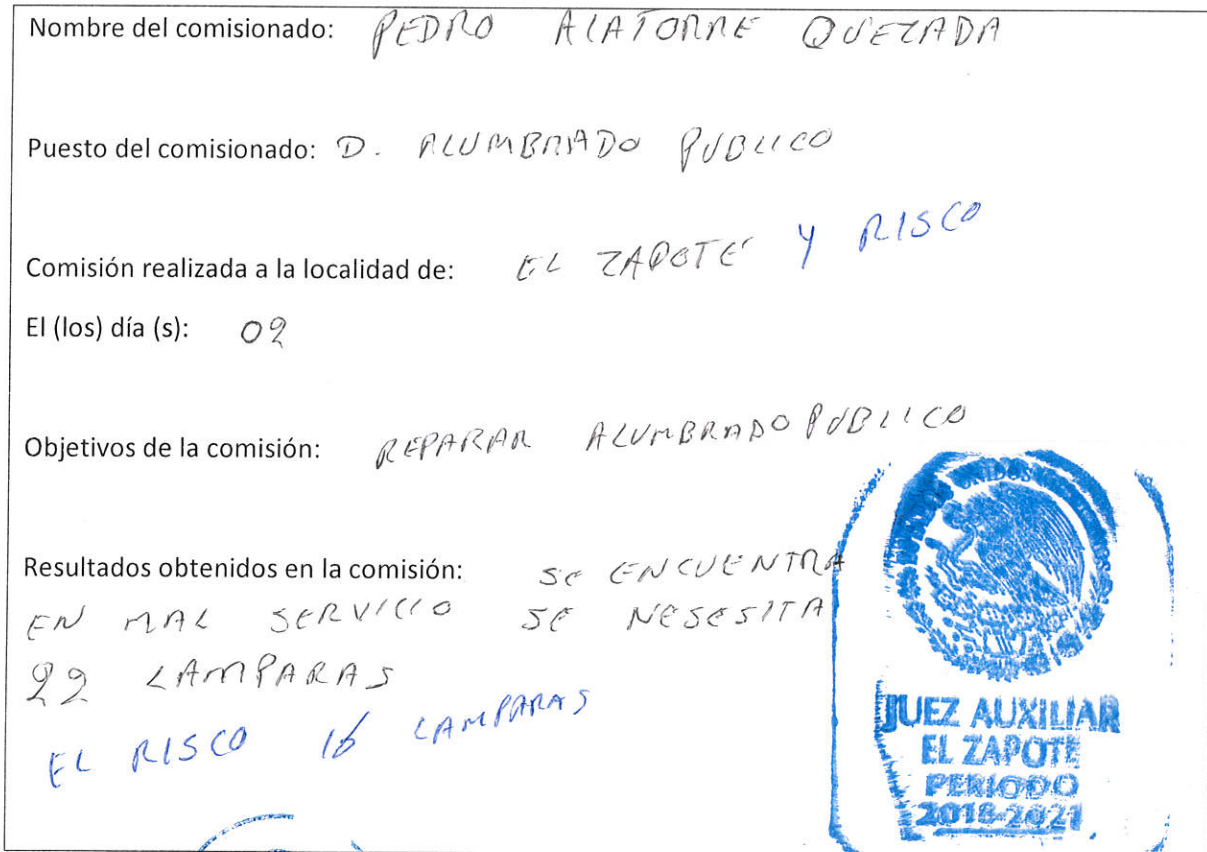 Nombre del comisionado: PEDRO ALATORRE QUEZADA
Puesto del comisionado: D. ALUMBRADO PUBLICO
Comisión realizada a la localidad de: EL ZAPOTE Y RISCO
El (los) día (s): 02
Objetivos de la comisión: REPARAR ALUMBRADO PUBLICO
UNIDOS
Resultados obtenidos en la comisión: SE ENCUENTRA
EN MAL SERVICIO SE NESESITA
22 LAMPARAS
EL RISCO 16 LAMPARAS
JUEZ AUXILIAR
EL ZAPOTE
PERIODO
2018-2021